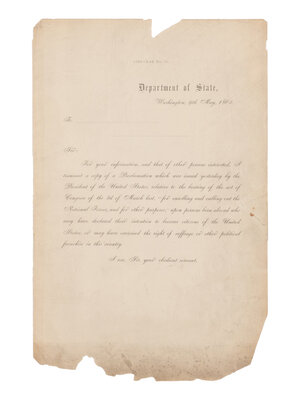 Department of State,
Washington, 9th May, 1863.
To
Sir:
For your information, and that of other persons interested, I
transmit a copy of a Proclamation which was issued yesterday by the
President of the United States, relative to the bearing of the act of
Congress of the 3d of March last, "for enrolling and calling out the
National Forces, and for other purposes," upon persons born abroad who
may have declared their intention to become citizens of the United
States, or may have exercised the right of suffrage or other political
franchise in this country.
I am, Sir, your obedient servant,